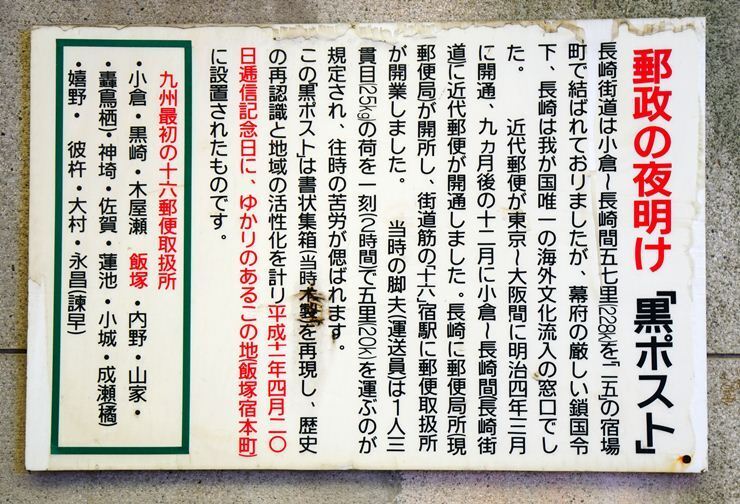 郵政の夜明け『黒ポスト』
長崎街道は小倉〜長崎間五七里(228k)を「二五」の宿場
町で結ばれておりましたが、幕府の厳しい鎖国令
下、長崎は我が国唯一の海外文化流入の窓口でし
た。　近代郵便が東京〜大阪間に明治四年三月
に開通、九ヵ月後の十二月に小倉〜長崎間(長崎街
道)に近代郵便が開通しました。長崎に郵便局所(現
郵便局)が開所し、街道筋の「十六」宿駅に郵便取扱所
が開業しました。　当時の脚夫(運送員)は1人三
貫目(25kg)の荷を一刻(2時間)で五里(20k)を運ぶのが
規定され、往時の苦労が偲ばれます。
この『黒ポスト』は書状集箱(当時木製)を再現し、歴史
の再認識と地域の活性化を計り平成十二年四月二〇
日逓信記念日に、ゆかりのあるこの地(飯塚宿本町)
に設置されたものです。
九州最初の十六郵便取扱所
・小倉・黒崎・木屋瀬　飯塚・内野・山家・
・轟(鳥栖)・神埼・佐賀・蓮池・小城・成瀬(橘)
・嬉野・　彼杵・大村・永昌(諫早)